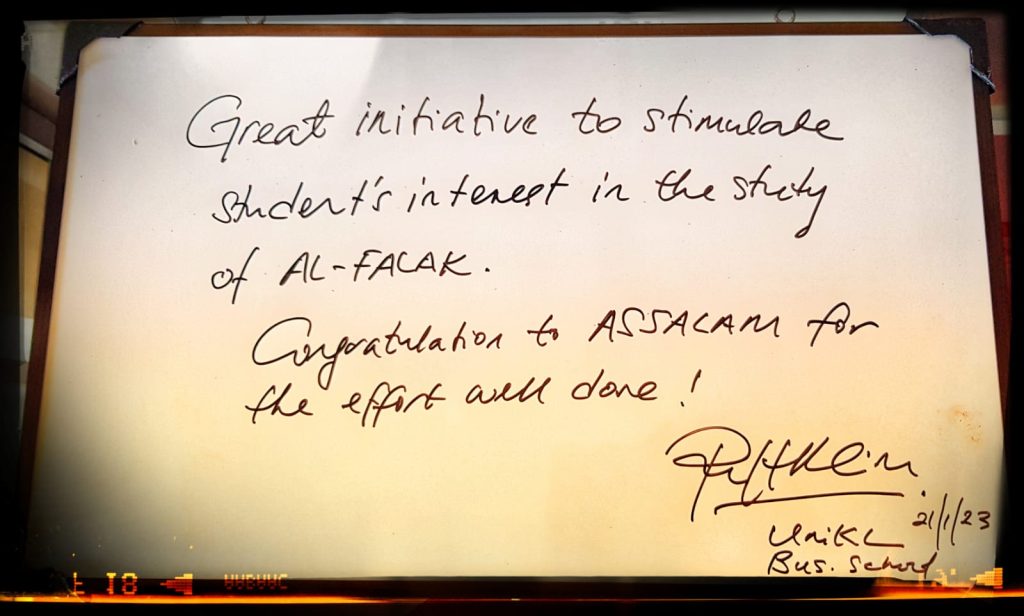 Great initiative to stimulate
student's interest in the study
of AL-FALAK.
Congratulation to ASSALAM for
the effort well done!
21/1/23
UniKL
Bus. School